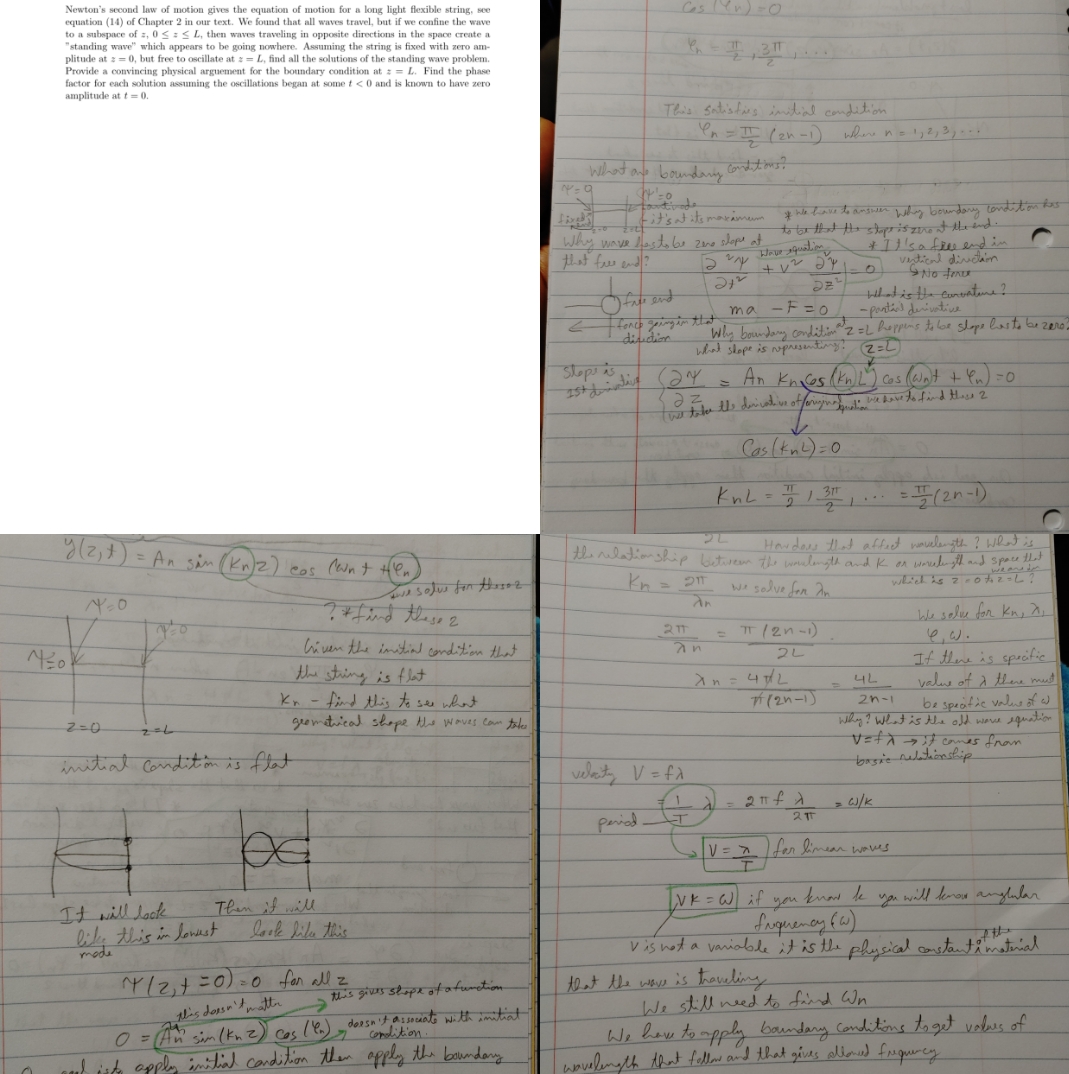 Newton's second law of motion gives the equation of motion for a long light flexible string, see
equation (14) of Chapter 2 in our text. We found that all waves travel, but if we confine the wave
to a subspace of z, 0 ≤ z ≤ L, then waves traveling in opposite directions in the space create a
"standing wave" which appears to be going nowhere. Assuming the string is fixed with zero am-
plitude at z = 0, but free to oscillate at z = L, find all the solutions of the standing wave problem.
Provide a convincing physical arguement for the boundary condition at z = L. Find the phase
factor for each solution assuming the oscillations began at some t < 0 and is known to have zero
amplitude at t = 0.
Cos(φn)=0
φn = π/2, 3π/2, ...
This satisfies initial condition
φn = π/2 (2n-1) where n = 1,2,3,...
What are boundary conditions?
Ψ=0
Ψ'=0
antinode
fixed
it's at its maximum
z=0 z=L
* we have to answer why boundary condition has
to be that the slope is zero at the end.
Why wave has to be zero slope at
that free end?
* It's a free end in
vertical direction
No force
wave equation
∂²Ψ/∂t² + v² ∂²Ψ/∂z² = 0
ma - F = 0
What is the curvature?
- partial derivative
free end
force going in that
direction
Why boundary condition at z=L happens to be slope has to be zero?
What slope is representing?
z=L
Slope is
1st derivative
∂Ψ/∂z = An Kn cos(KnL) cos(ωnt + φn) = 0
we take the derivative of original equation
we have to find these 2
Cos(KnL)=0
KnL = π/2, 3π/2, ... = π/2 (2n-1)
y(z,t) = An sin(Knz) cos(ωnt + φn)
we solve for these 2
? * find these 2
Ψ=0
Ψ'=0
Ψ=0
z=0 z=L
Given the initial condition that
the string is flat
Kn - find this to see what
geometrical shape the waves can take
initial condition is flat
It will look
like this in lowest
mode
Then it will
look like this
Ψ(z,t=0)=0 for all z
this doesn't matter
this gives shape of a function
0 = An sin(Knz) cos(φn)
doesn't associate with initial
condition
apply initial condition then apply the boundary
2L
How does that affect wavelength? What is
the relationship between the wavelength and K or wavelength and space that
we are in
which is z=0 to z=L?
Kn = 2π/λn we solve for λn
2π/λn = π(2n-1)/2L
We solve for Kn, λ,
φ, ω.
λn = 4πL/π(2n-1) = 4L/2n-1
If there is specific
value of λ there must
be specific value of ω
Why? What is the old wave equation
V=fλ → it comes from
basic relationship
velocity V = fλ
= 1/T λ = 2πf λ/2π = ω/k
period
V = λ/T for linear waves
VK = ω if you know k you will know anglular
frequency (ω)
V is not a variable it is the physical constant of the material
that the wave is traveling
We still need to find ωn
We have to apply boundary conditions to get values of
wavelength that follow and that gives allowed frequency